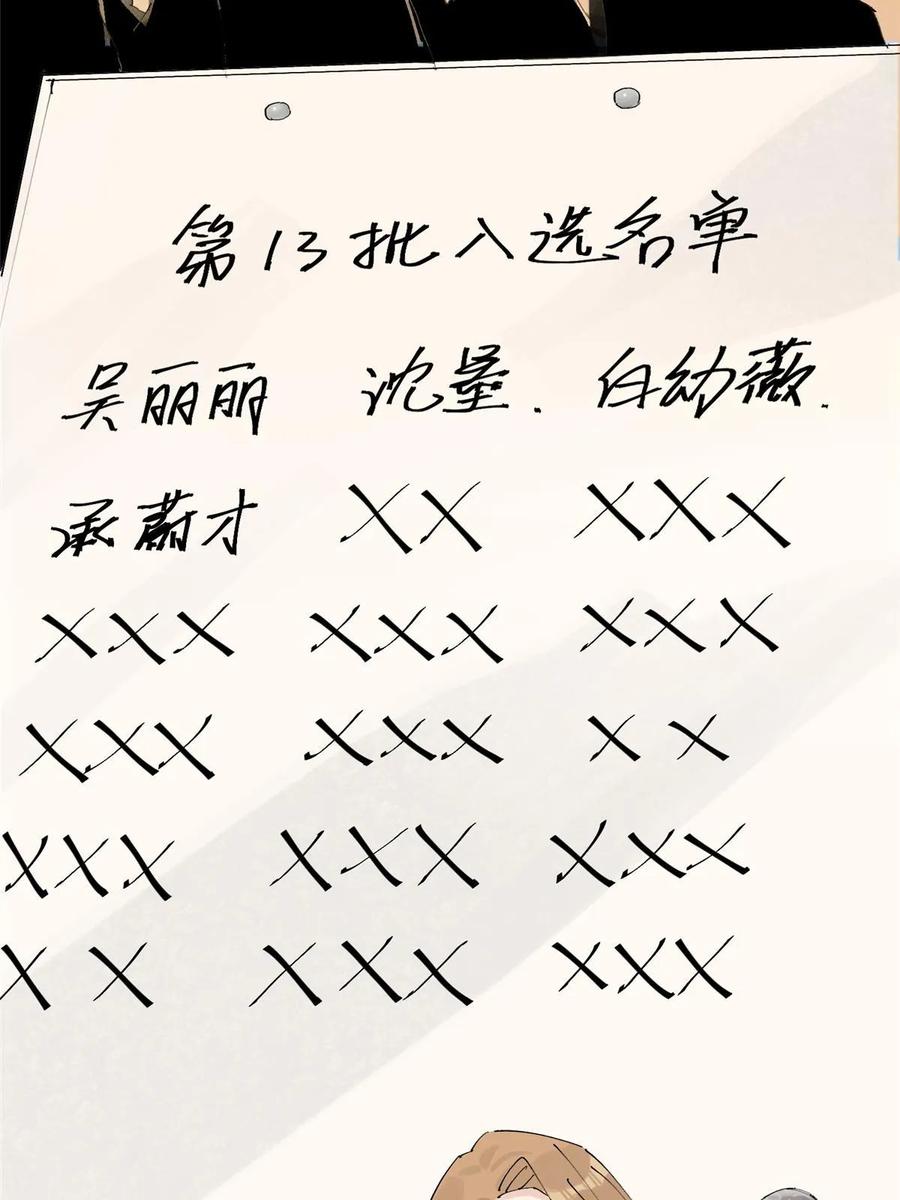 第13批入选名单
吴丽丽 沈墨. 白幼薇.
承蔚才 XX XXX
XXX XXX XXX
XXX XXX XX
XXX XXX XXX
XX XXX XXX